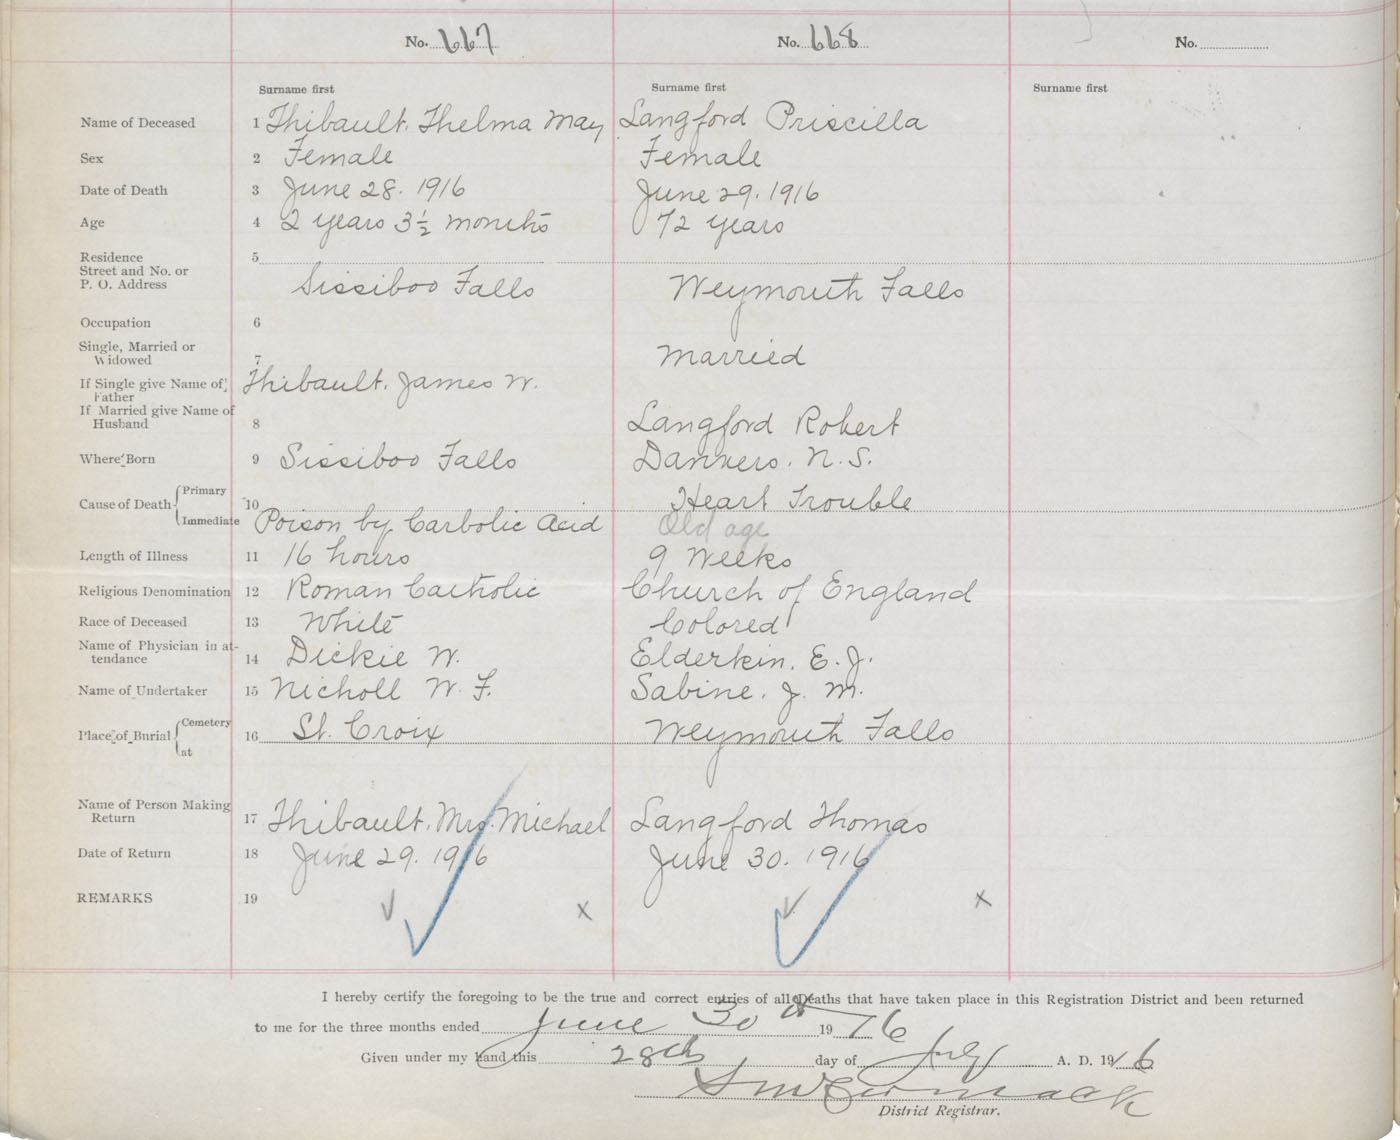 No. 667 No. 668 No.
Surname first Surname first Surname first
Name of Deceased 1 Thibault. Thelma May Langford Priscilla
Sex 2 Female Female
Date of Death 3 June 28. 1916 June 29. 1916
Age 4 2 years 3½ months 72 years
Residence 5
Street and No. or
P. O. Address Sissiboo Falls Weymouth Falls
Occupation 6
Single, Married or
Widowed 7 Married
If Single give Name of Thibault. James W.
Father
If Married give Name of
Husband 8 Langford Robert
Where Born 9 Sissiboo Falls Danvers. N. S.
Cause of Death Primary 10 Heart Trouble
Immediate Poison by Carbolic Acid Old age
Length of Illness 11 16 hours 9 Weeks
Religious Denomination 12 Roman Catholic Church of England
Race of Deceased 13 White Colored
Name of Physician in at-
tendance 14 Dickie W. Elderkin. E. J.
Name of Undertaker 15 Nicholl W. F. Sabine. J. M.
Place of Burial Cemetery
at 16 St. Croix Weymouth Falls
Name of Person Making
Return 17 Thibault. Mrs. Michael Langford Thomas
Date of Return 18 June 29. 1916 June 30. 1916
REMARKS 19
I hereby certify the foregoing to be the true and correct entries of all Deaths that have taken place in this Registration District and been returned
to me for the three months ended June 30th 1916
Given under my hand this 28th day of July A. D. 1916
District Registrar.